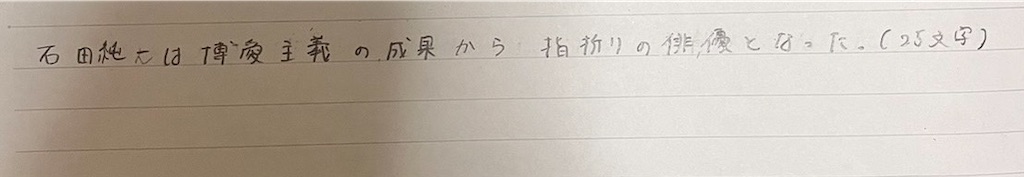 石田純一は博愛主義の成果から指折りの俳優となった。(25文字)